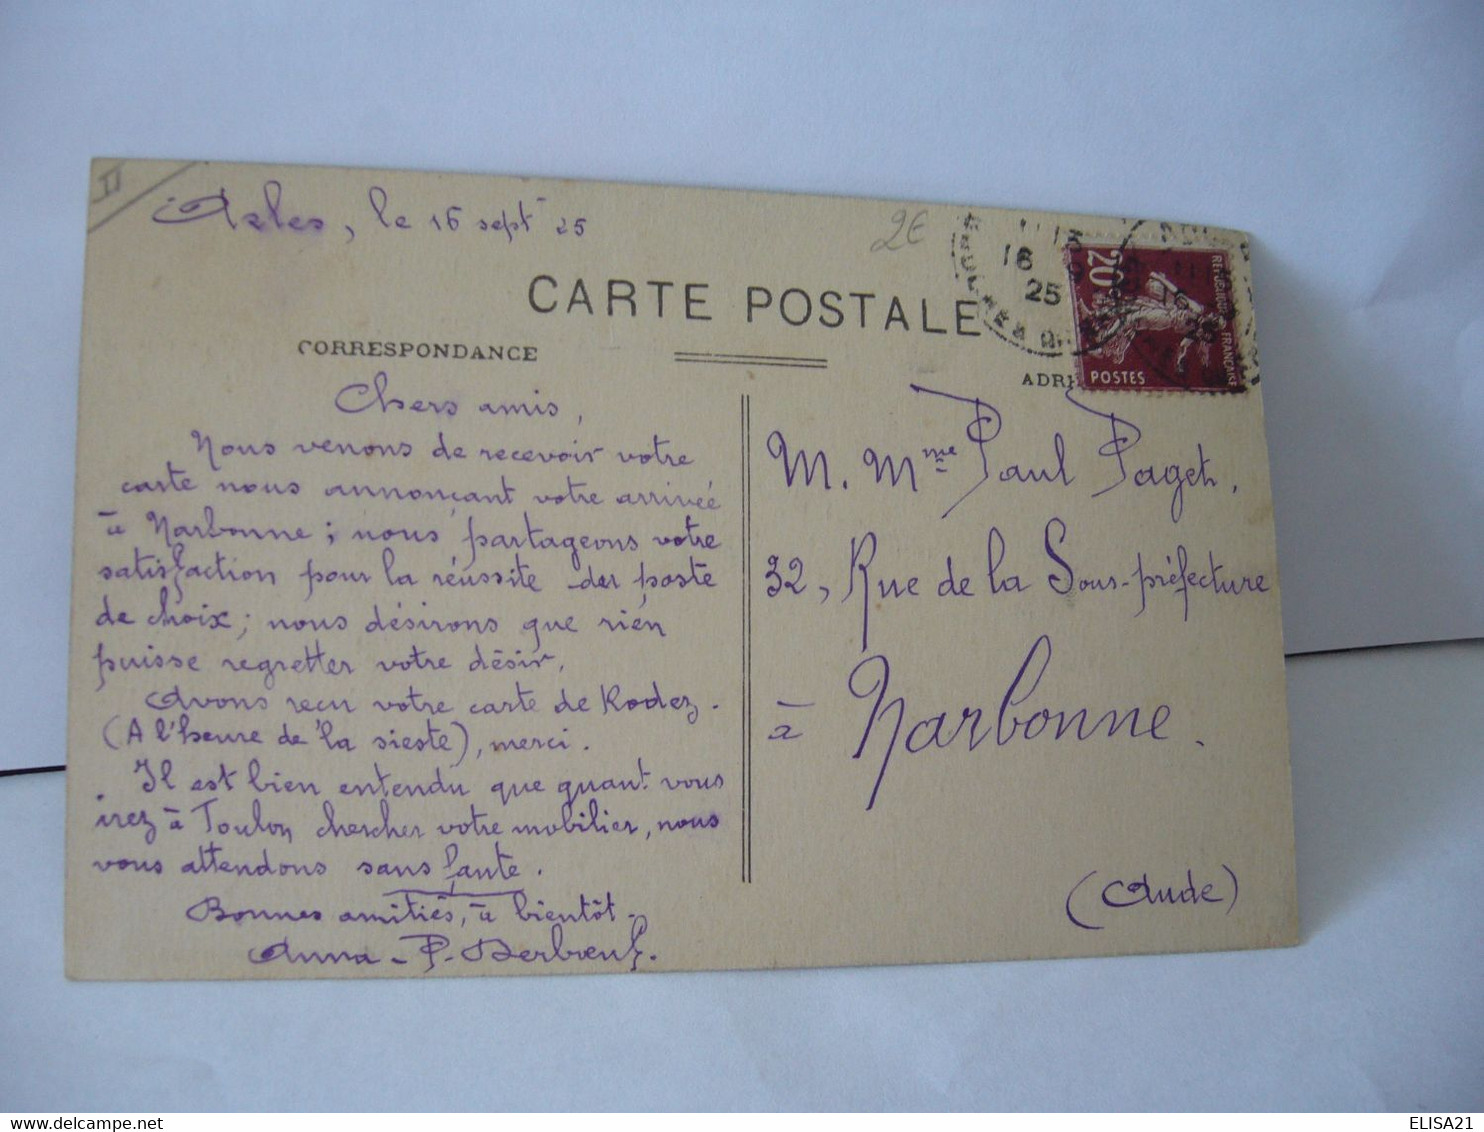 II
Arles, le 16 sept 25
2€
16
25
20c
REPUBLIQUE FRANÇAISE
POSTES
CARTE POSTALE
CORRESPONDANCE
ADRE
Chers amis,
Nous venons de recevoir votre
carte nous annonçant votre arrivée
à Narbonne; nous partageons votre
satisfaction pour la réussite du poste
de choix; nous désirons que rien
puisse regretter votre désir.
Avons reçu votre carte de Rodez.
(A l'heure de la sieste), merci.
Il est bien entendu que quant vous
irez à Toulon chercher votre mobilier, nous
vous attendons sans faute.
Bonnes amitiés, à bientôt.
Anna - P. Derbœuf.
M. Mme Paul Paget,
32, Rue de la Sous-préfecture
à Narbonne.
(Aude)
ELISA21